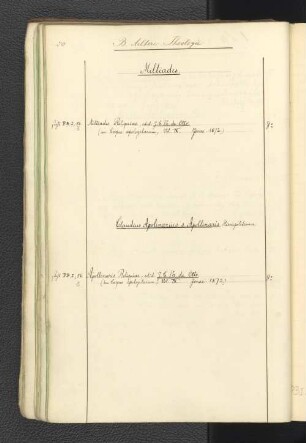 50 B. Ältere Theologie
Miltiades
Miltiades Reliquiae, ed. J. C. Th. de Otto
(in: Corpus apologetarum, Vol. IX. Jenae 1872.)
Claudius Apolinarius s. Apollinaris Hierapolitanus
Apollinaris Reliquiae ed. J. C. Th. de Otto
(in: Corpus Apologetarum, Vol. IX. Jenae 1872.)